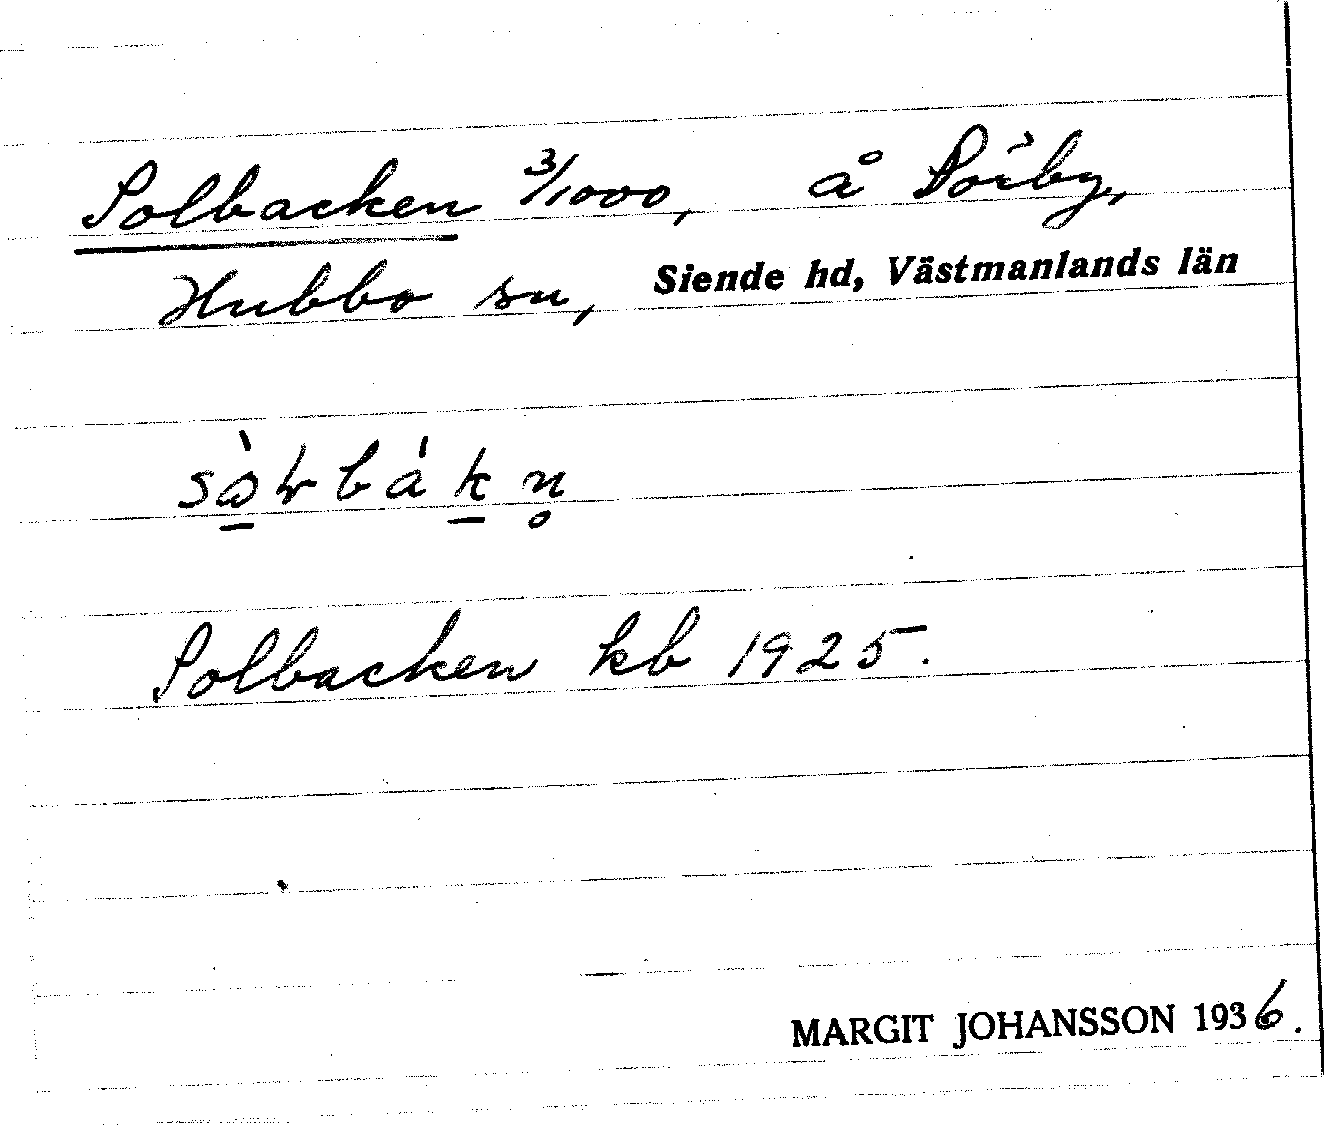 Solbacken 3/1000, å Sörby,
Hubbo sn, Siende hd, Västmanlands län
Solbacken kb 1925.
MARGIT JOHANSSON 1936.